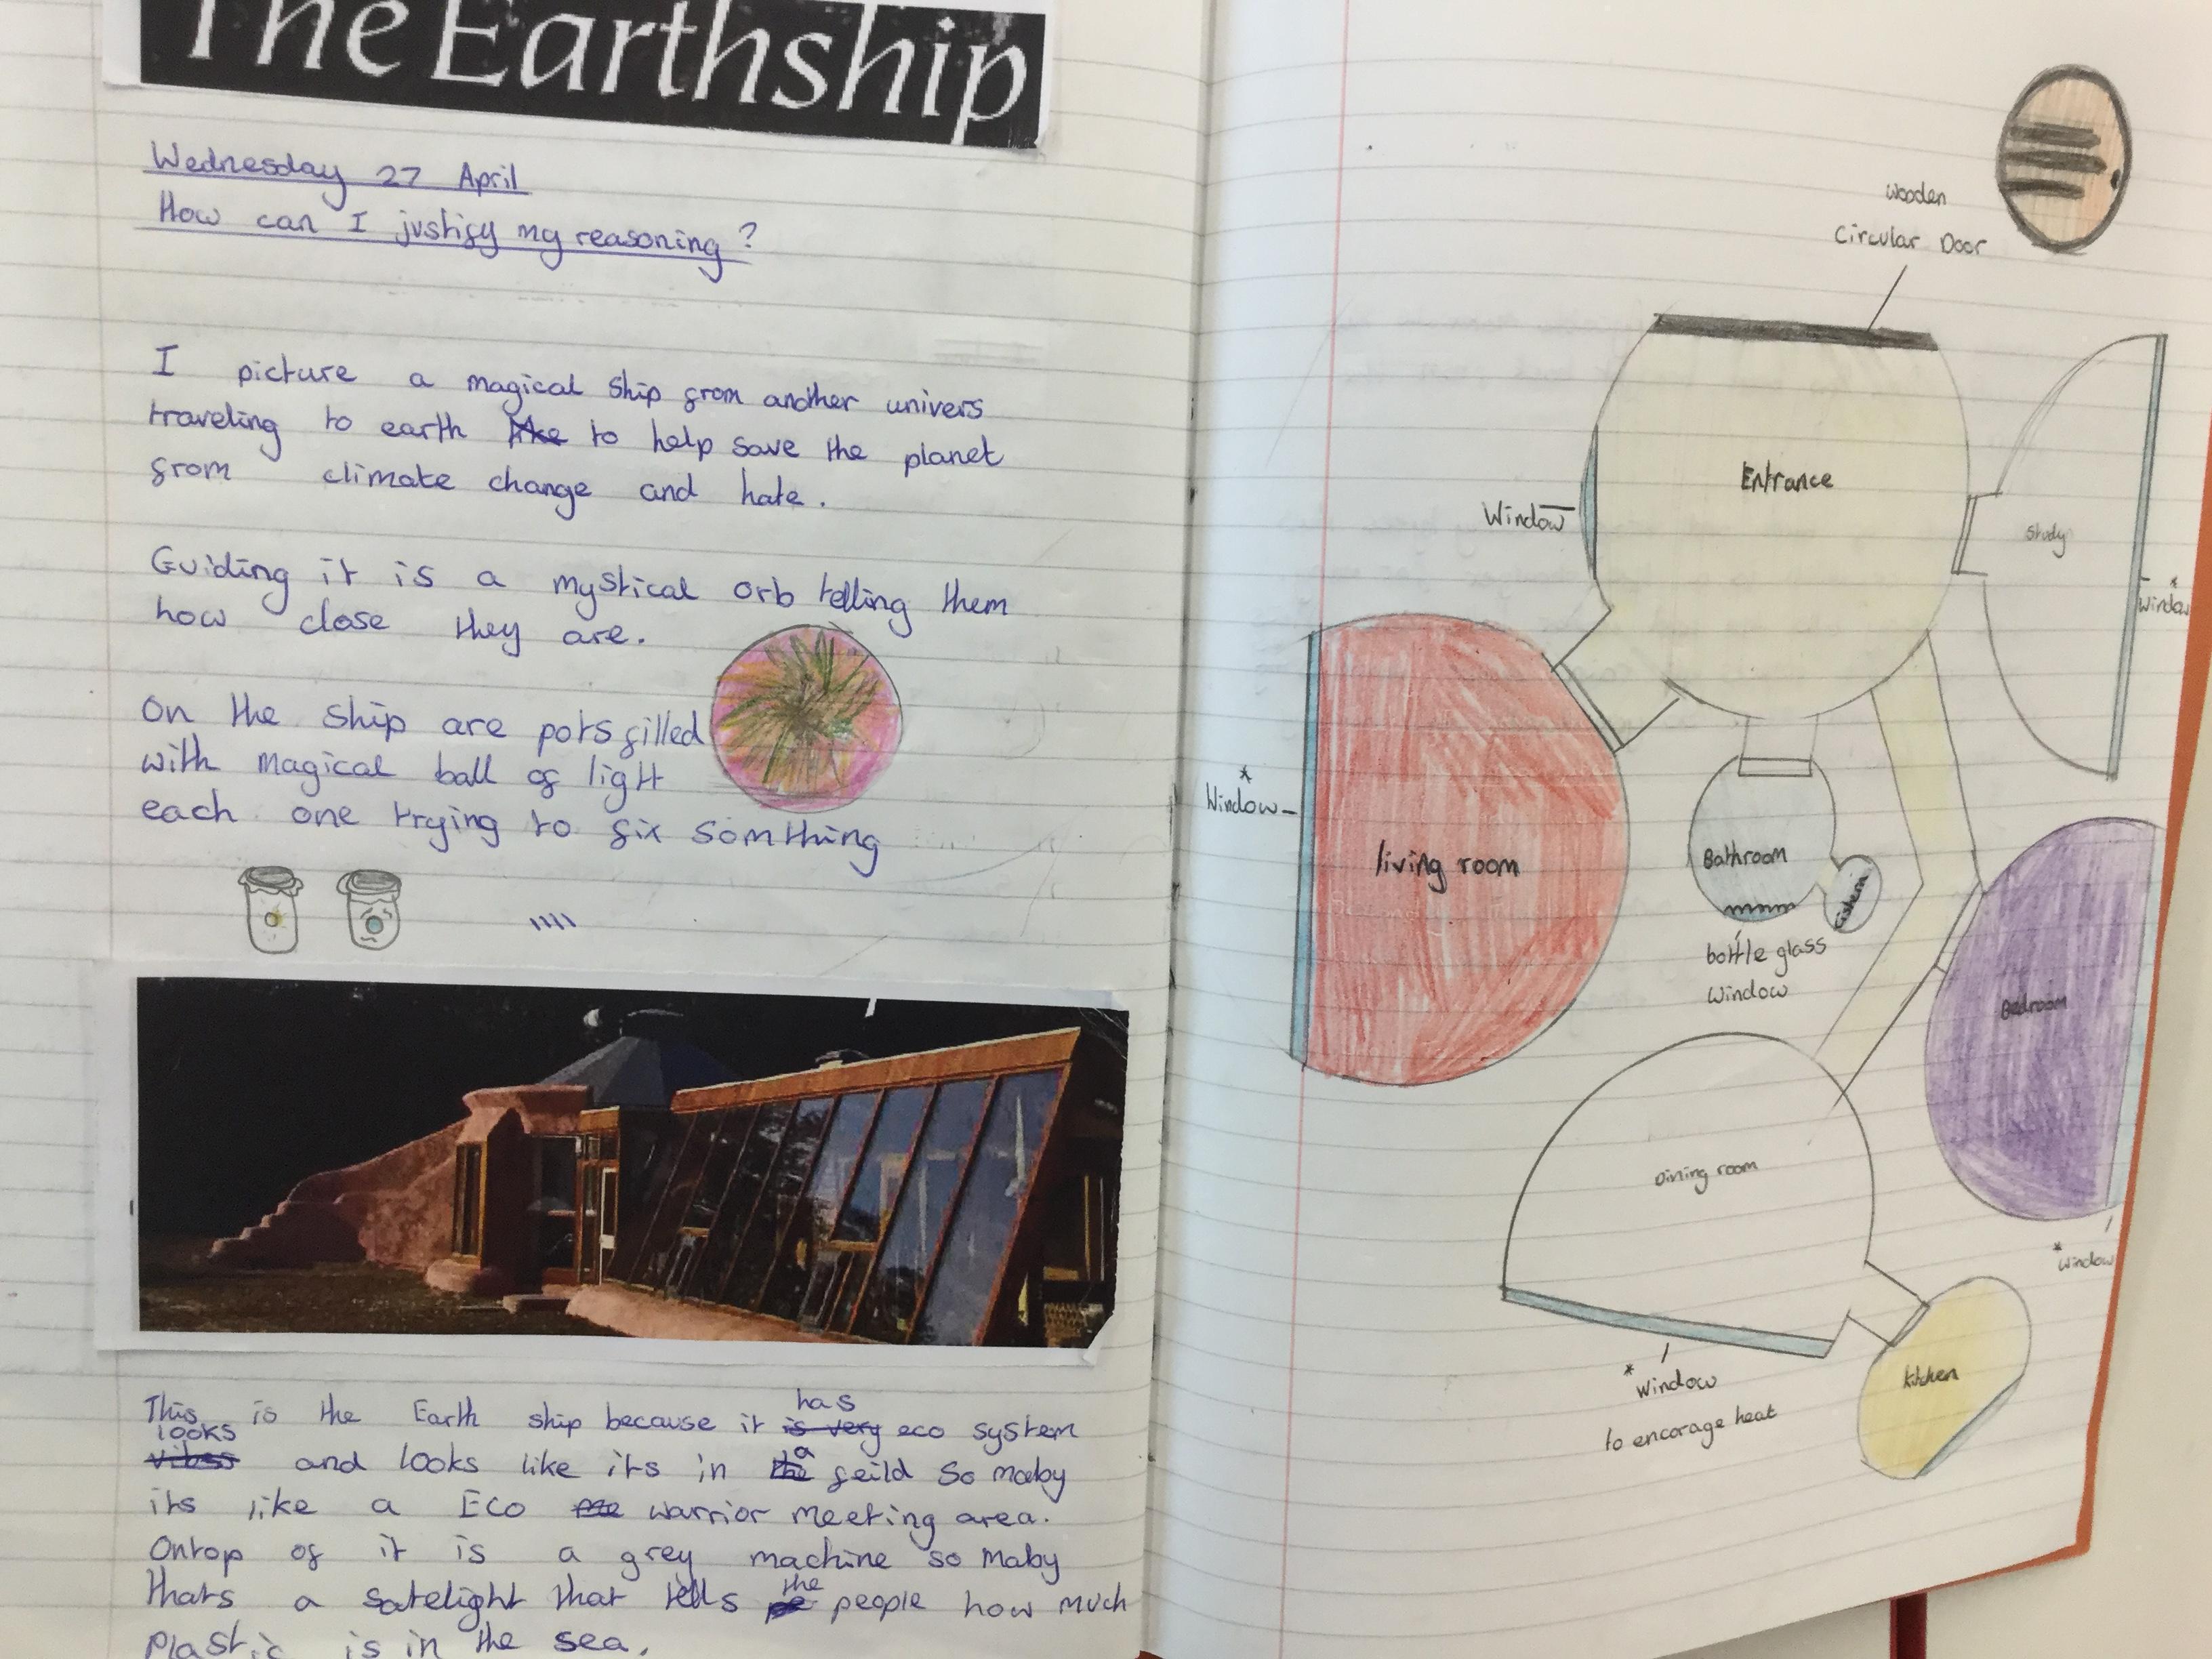 The Earthship
Wednesday 27 April
How can I justify my reasoning?
I picture a magical ship from another univers
traveling to earth like to help save the planet
from climate change and hate.
Guiding it is a mystical orb telling them
how close they are.
On the ship are pots filled
with magical ball of light
each one trying to fix somthing
This is the Earth ship because it is very has eco system
vibes looks and looks like its in the a feild so maby
its like a Eco me warrior meeting area.
Ontop of it is a grey machine so maby
thats a satelight that tells the people how much
plastic is in the sea.
Wooden
Circular Door
Entrance
Window
Study
*
Window
*
Window
living room
Bathroom
Cistern
bottle glass
window
Bedroom
*
window
Dining room
*
window
to encorage heat
kitchen